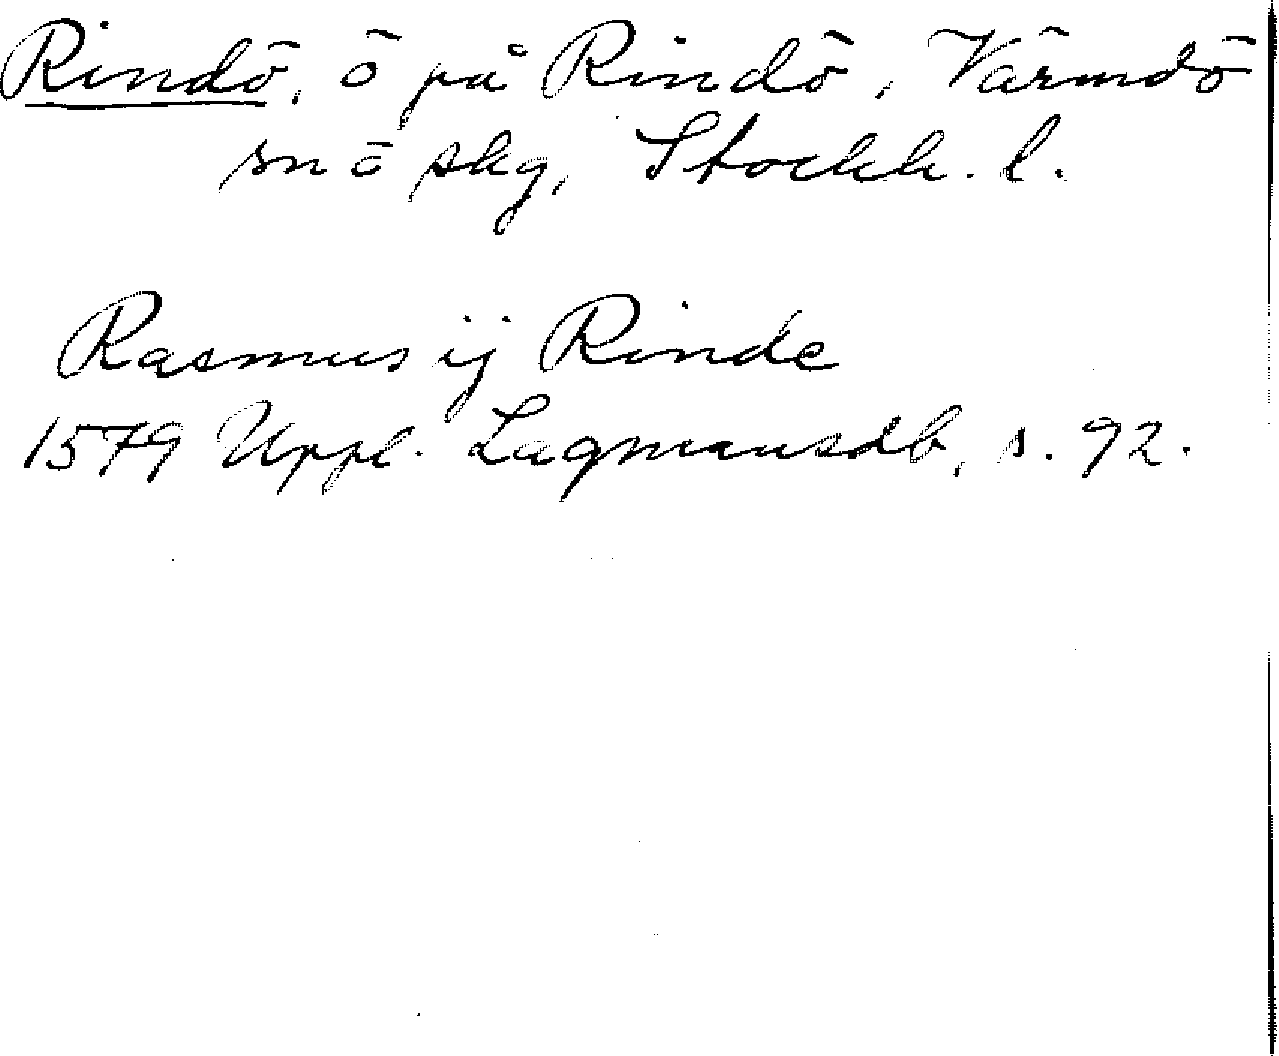 Rindö, ö på Rindö, Värmdö
sn ö skg, Stockh. l.
Rasmus ij Rinde
1579 Uppl. Lagmansdb, s. 92.